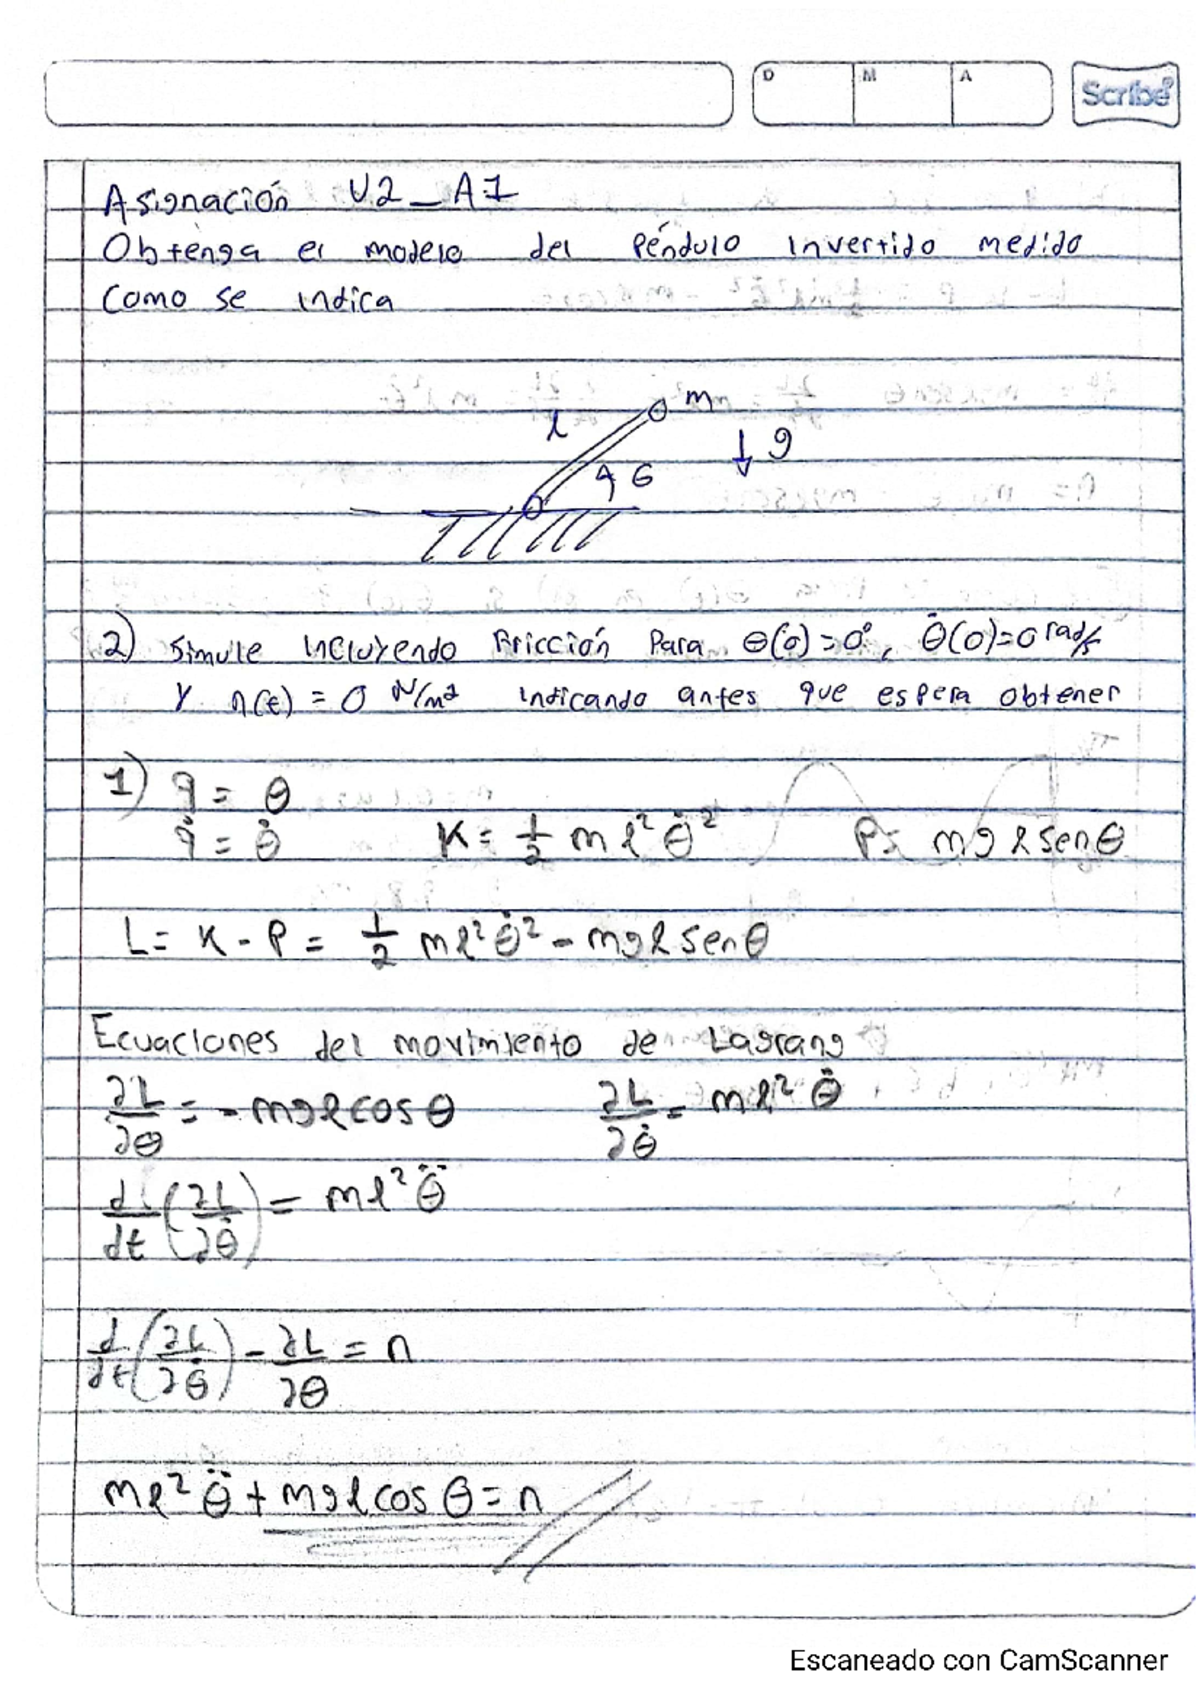 D M A Scribe
Asignación U2_A1
Obtenga el modelo del péndulo invertido medido
como se indica
l m
g
θ
2) Simule incluyendo fricción para θ(0)=0°, θ̇(0)=0 rad/s
y n(t) = 0 N/m² indicando antes que espera obtener
1) q = θ
q̇ = θ̇ K = 1/2 m l² θ̇² P = mg l sen θ
L = K - P = 1/2 ml² θ̇² - mgl sen θ
Ecuaciones del movimiento de Lagrang
∂L/∂θ = - mgl cos θ ∂L/∂θ̇ = ml² θ̇
d/dt (∂L/∂θ̇) = ml² θ̈
d/dt (∂L/∂θ̇) - ∂L/∂θ = n
ml² θ̈ + mgl cos θ = n
Escaneado con CamScanner